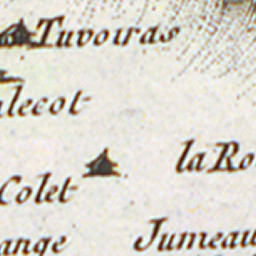 Tuvoiras
alecot
la Ro
Colet
ange
Jumeau